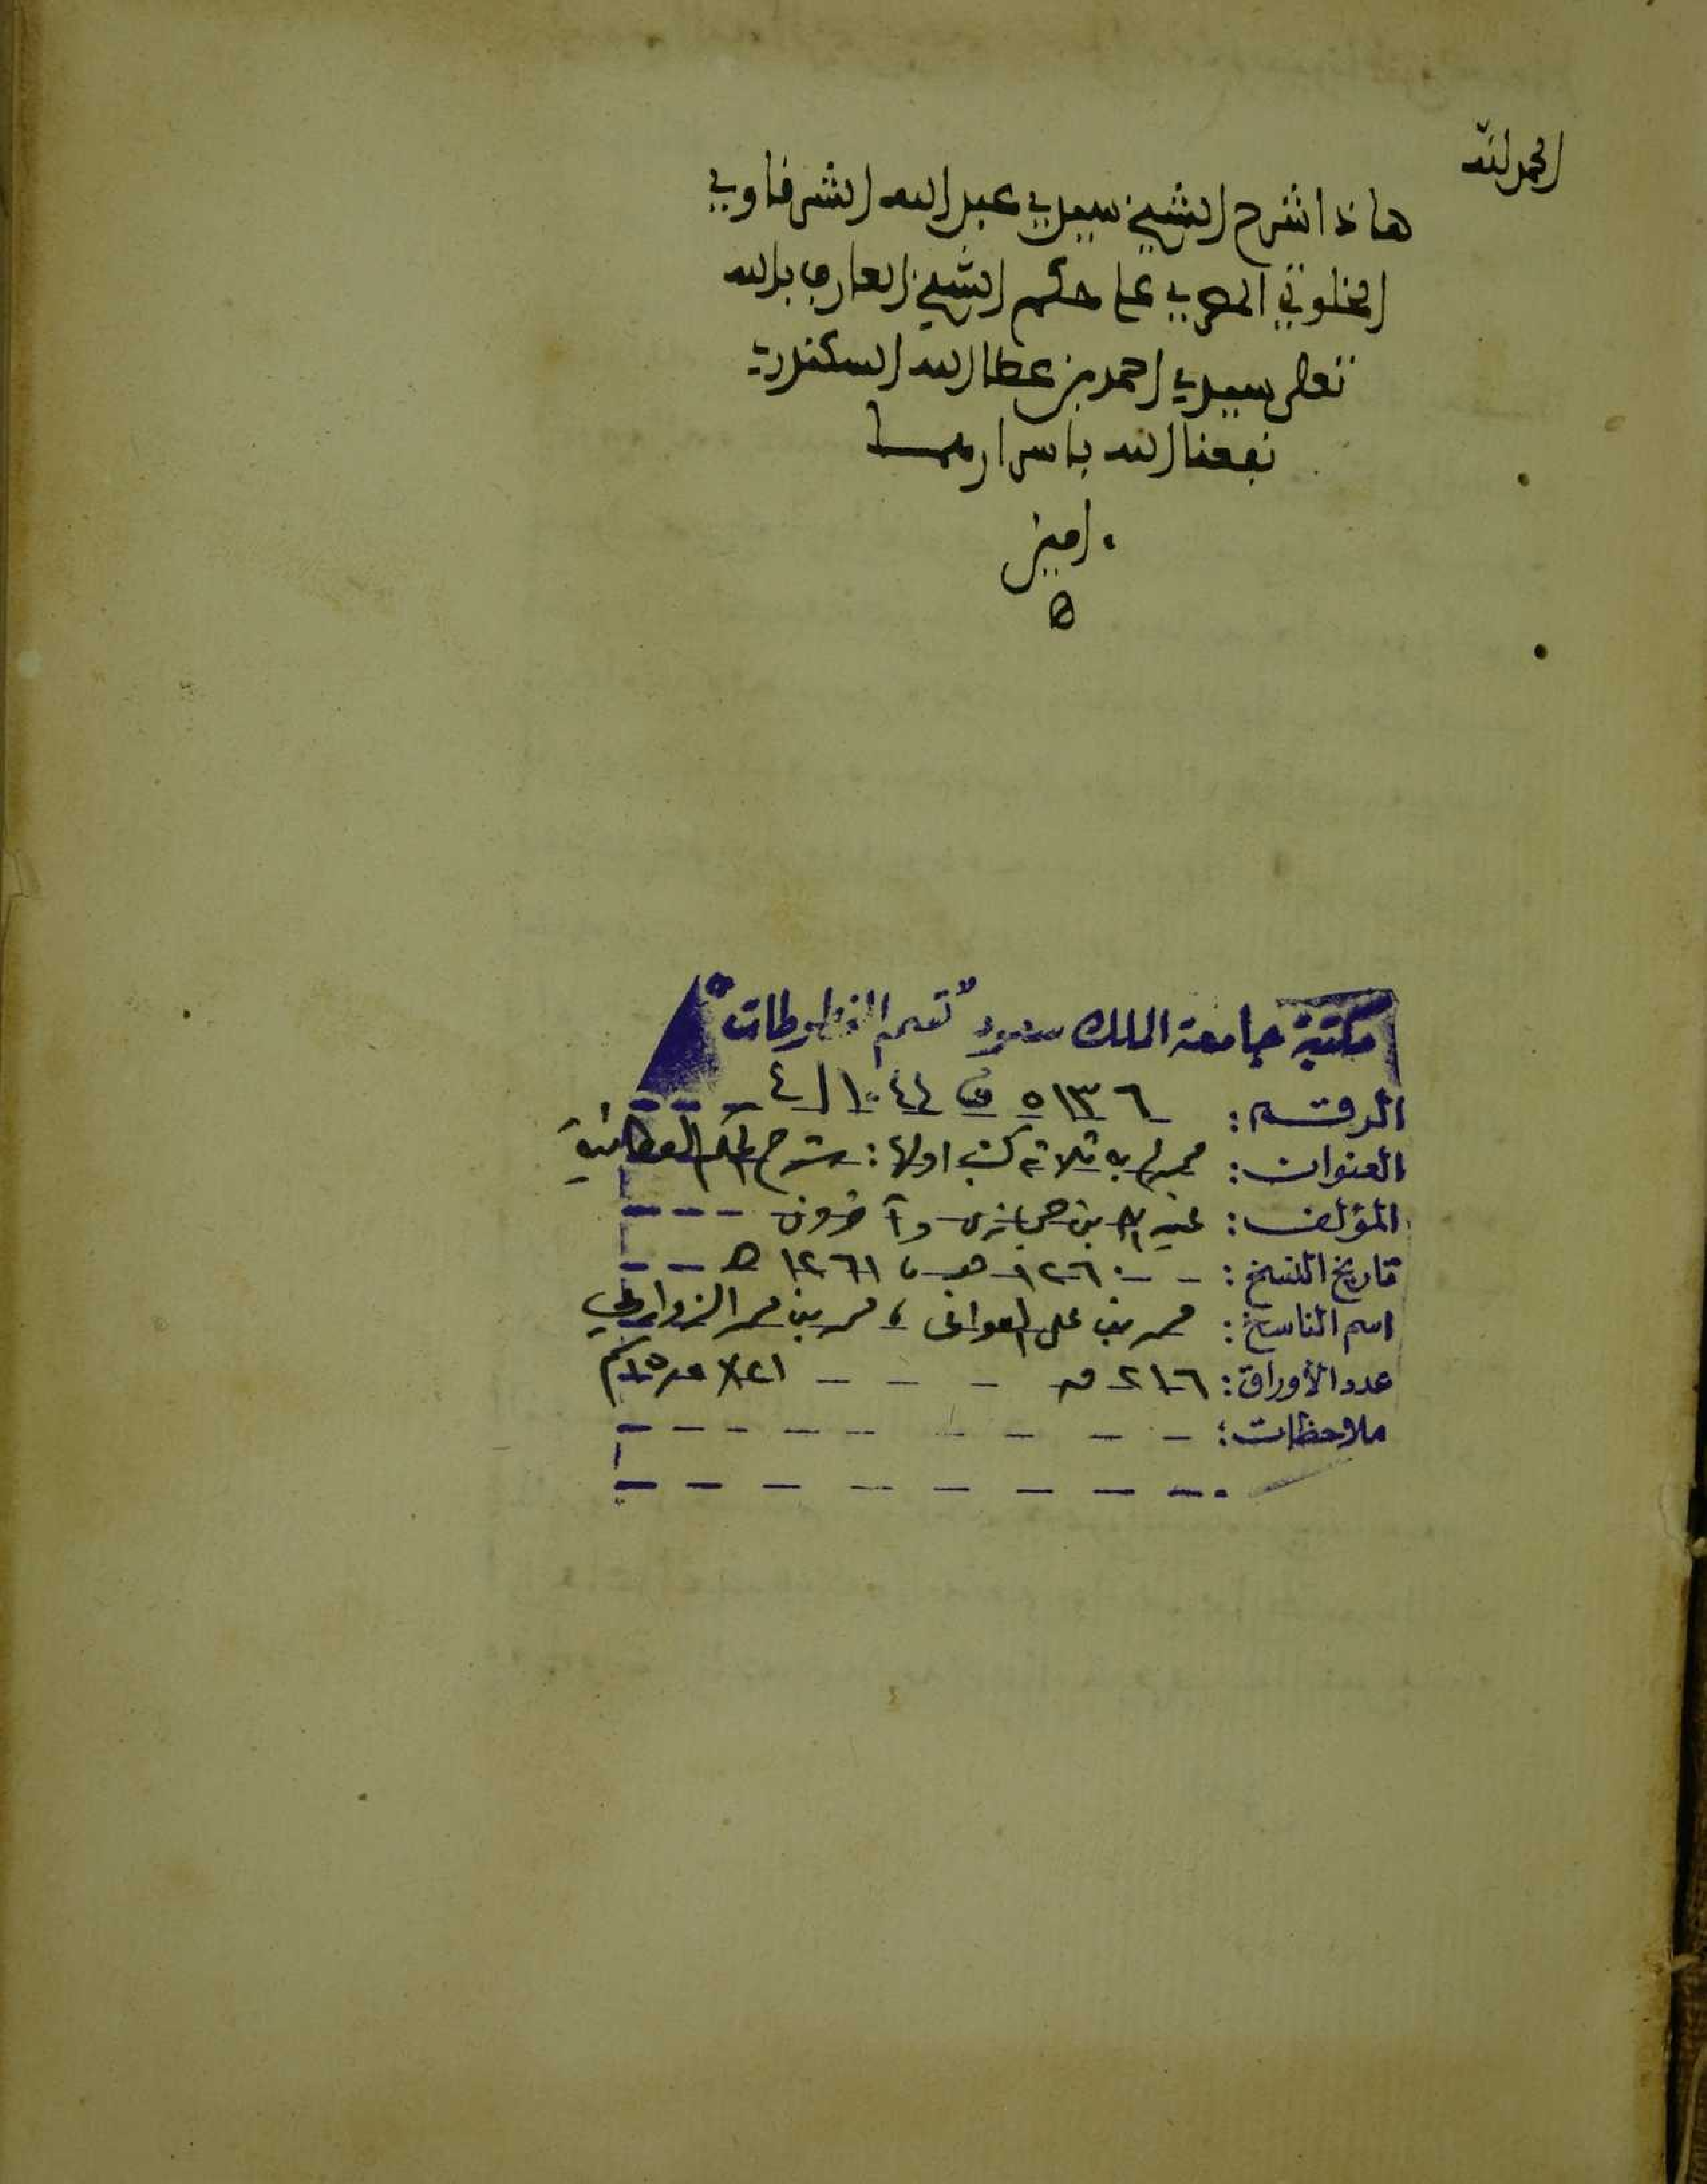 الحمد لله
هاذا شرح الشيخ سيدي عبد الله الشرقاوي
الخلوتي المصري على حكم الشيخ العارف بالله
تعلى سيدي احمد بن عطا الله السكندري
نفعنا الله باسرارهما
امين
ه
مكتبة جامعة الملك سعود "قسم المخطوطات"
الرقم: ٥١٣٦ ف ١٠٤٤/٤
العنوان: مجموع به ثلاثة كتب اولها: شرح الحكم العطائية
المؤلف: عبد الله بن حجازى وآخرون
تاريخ النسخ: ١٢٦٠ هـ، ١٢٦١ هـ
اسم الناسخ: محمد بن على، محمد بن محمد
عدد الأوراق: ٢١٦ ق
ملاحظات: